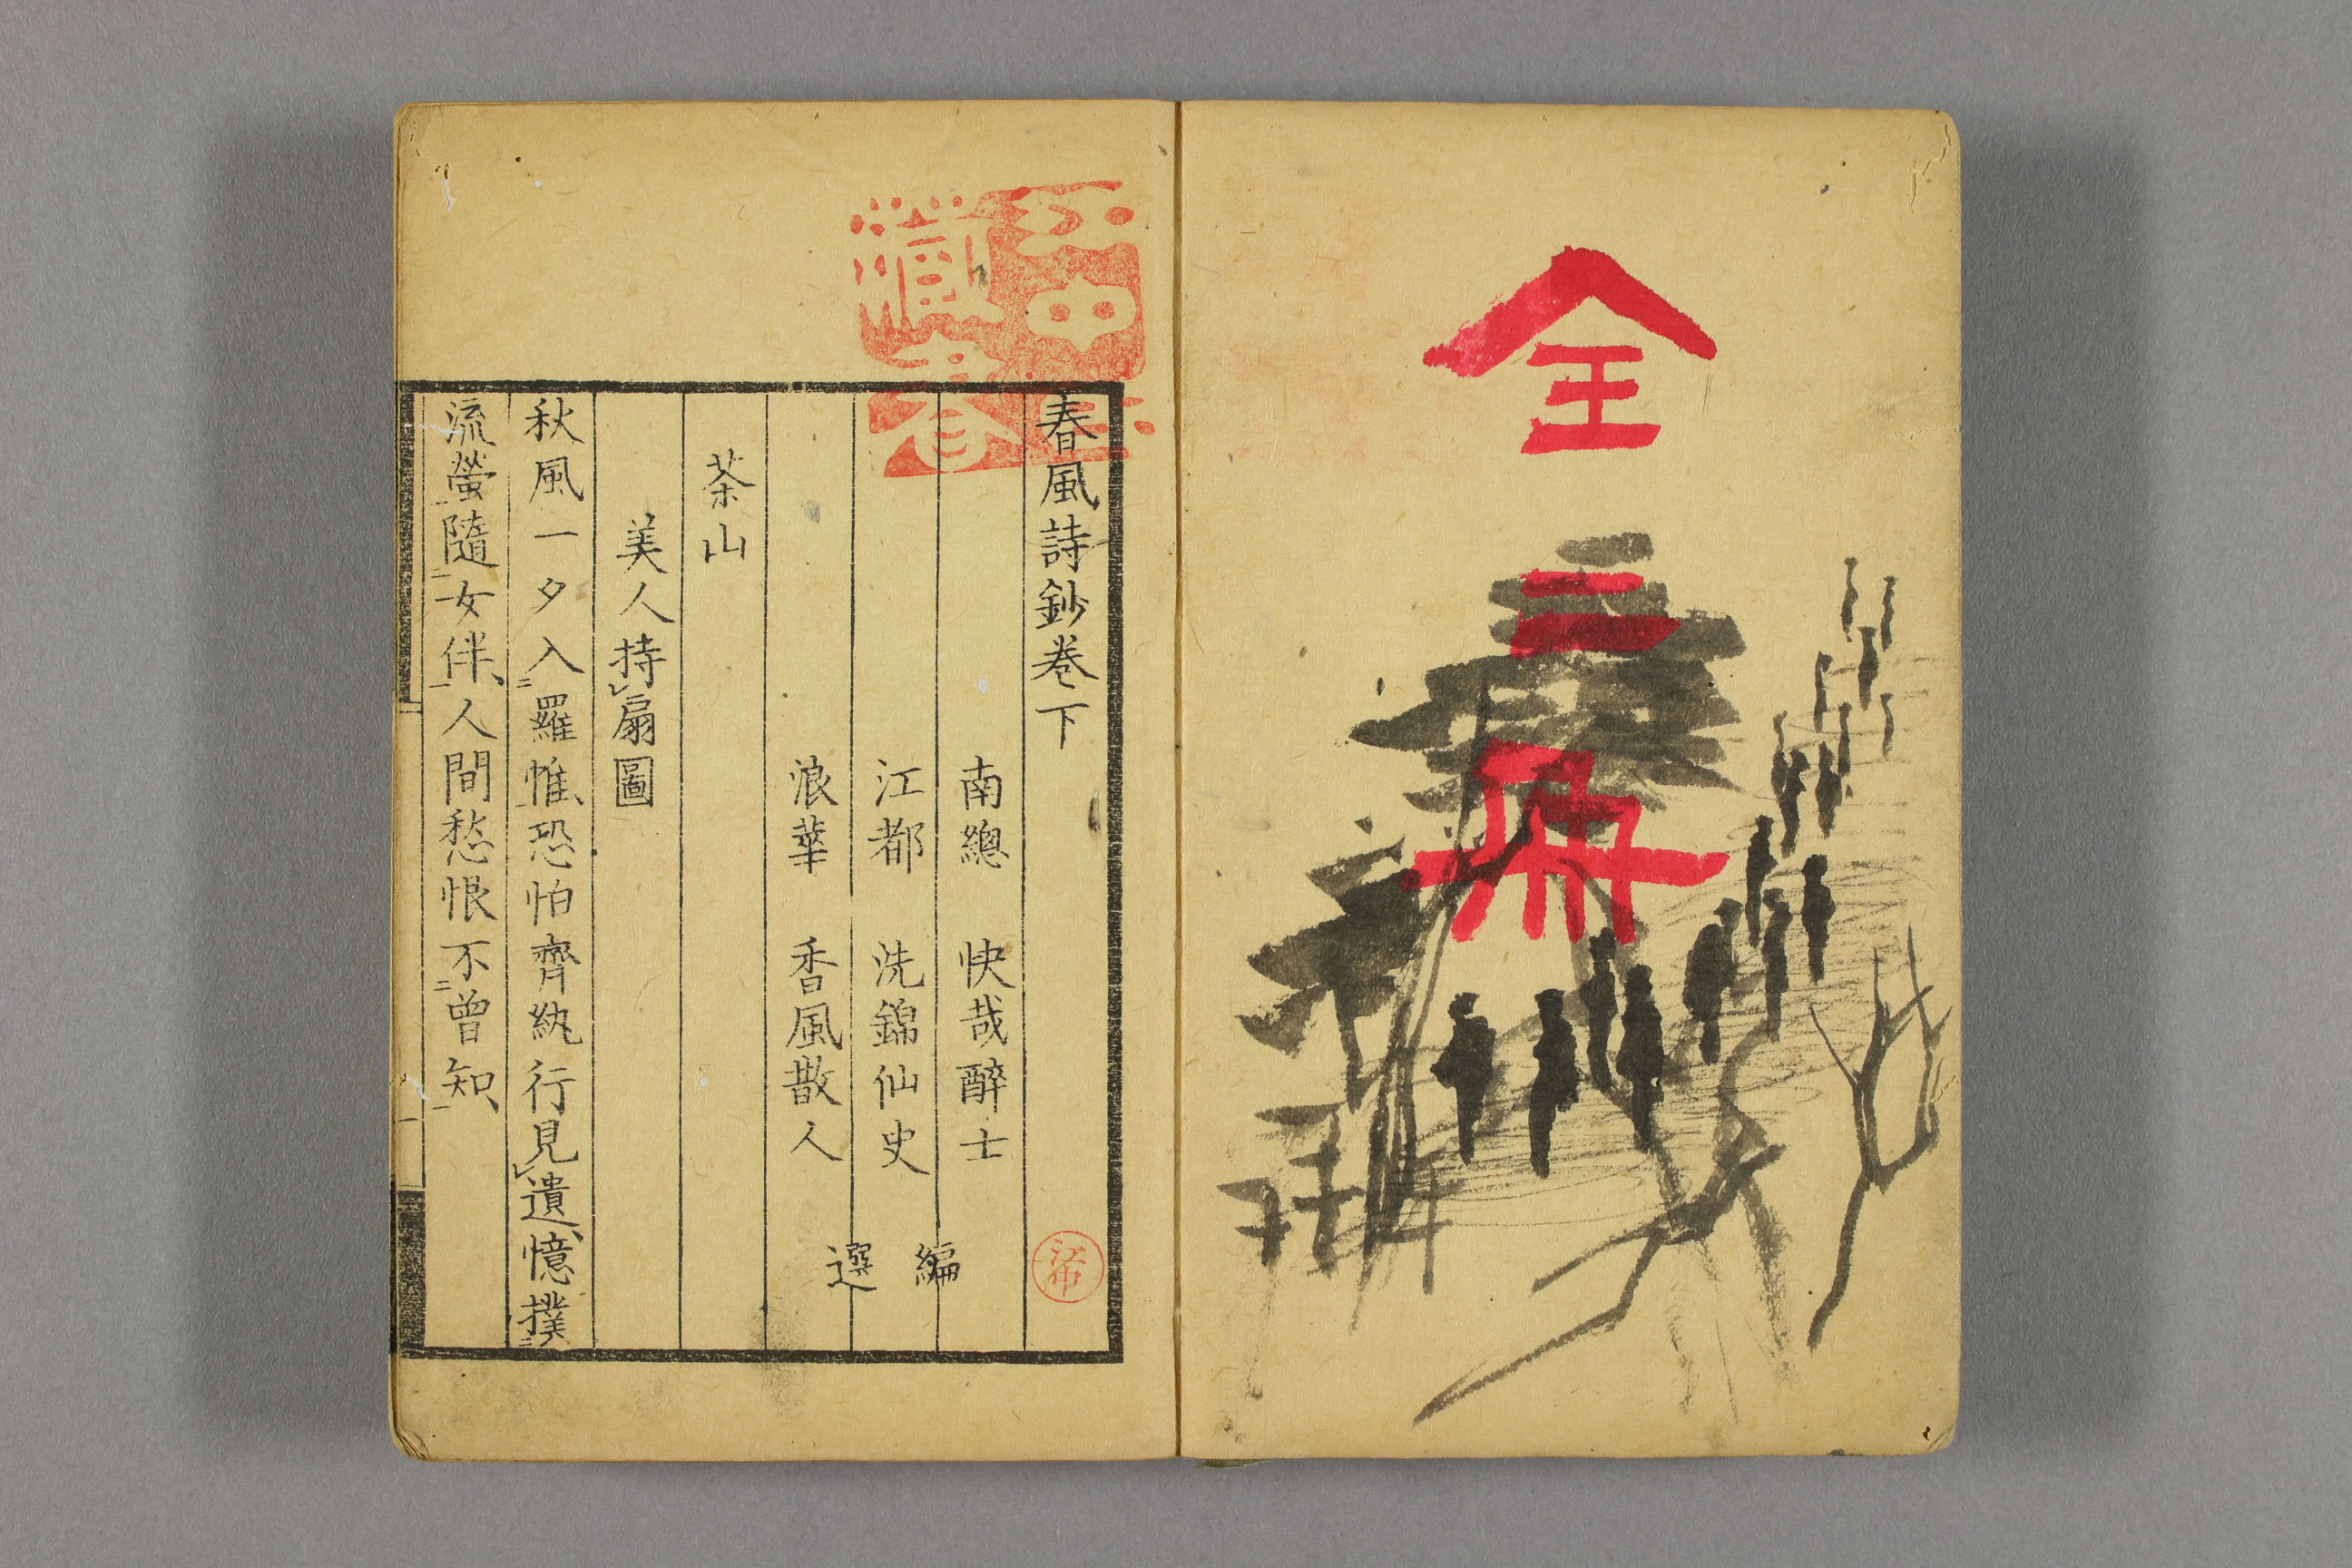 全
二
冊
春風詩鈔巻下
南總 快哉醉士
江都 洗錦仙史
浪華 香風散人
編
選
茶山
美人持㆑扇圖
秋風一夕入㆓羅帷㆒、恐怕齊紈行見㆑遺、憶撲㆓
流螢㆒隨㆓女伴㆒、人間愁恨不㆓曾知㆒、